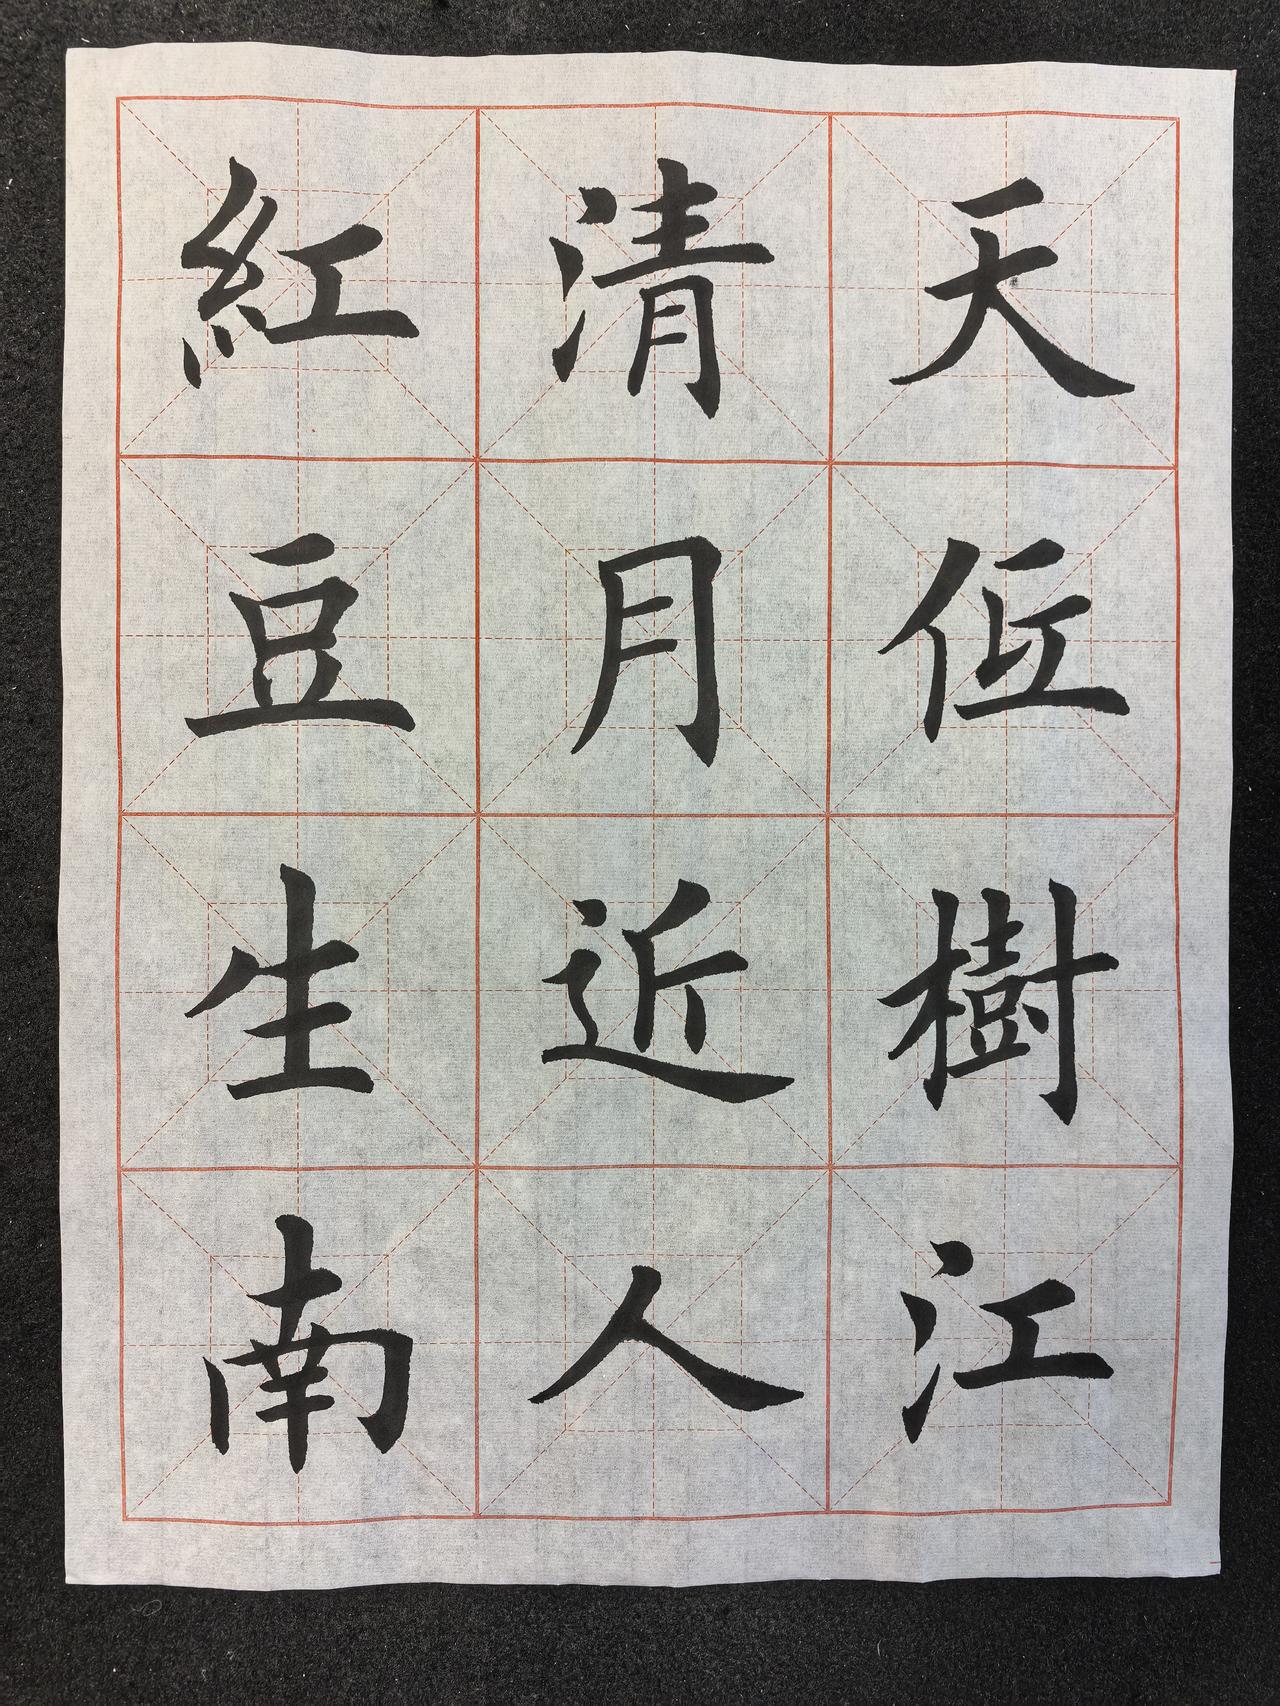 天低樹江
清月近人
紅豆生南